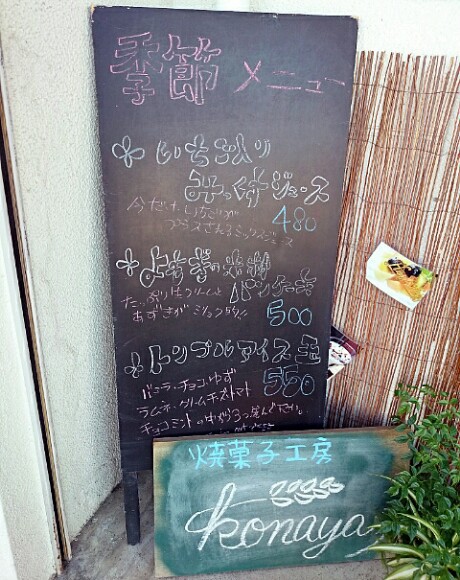 季節 メニュー
＊いちご入り
ミックスジュース
今だけいちごが
プラスされるミックスジュース
480
＊よもぎの米粉
パンケーキ
たっぷり生クリームと
あずきが
500
＊トリプルアイス
550
バニラ・チョコ・ゆず
ラムネ・クリームチーズ・トマト
チョコミントの中から3つ選んで下さい。
焼菓子工房
konaya